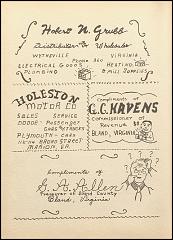 Hobert N. Grubb
Distributor & Wholesaler
WYTHEVILLE VIRGINIA
Phone 360
ELECTRICAL GOODS HEATING
PLUMBING & MILL SUPPLIES
HOLESTON
MOTOR CO
SALES SERVICE
DODGE - Passenger
Cars & TRUCKS
PLYMOUTH - Cars
MARION, VA.
Compliments of
G.C. HAVENS
Commissioner of
Revenue
BLAND, VIRGINIA
Compliments
of
Treasurer of Bland County
Bland, Virginia